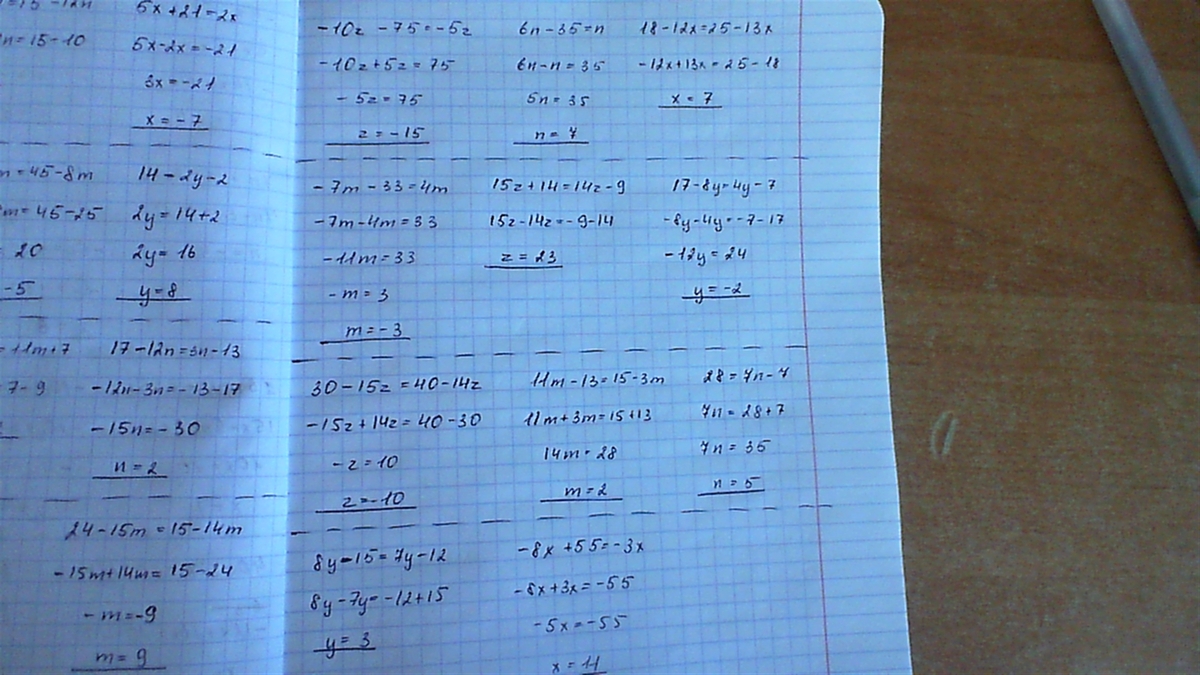 5x+21=2x
2n=15-10
5x-2x=-21
3x=-21
x=-7
m=45-8m
14-2y-2
8m=45-25
2y=14+2
20
2y=16
-5
y=8
=11m+7
17-12n=3n-13
7-9
-12n-3n=-13-17
-15n=-30
n=2
24-15m=15-14m
-15m+14m=15-24
-m=-9
m=9
-10z-75=-5z
6n-35=n
18-12x=25-13x
-10z+5z=75
6n-n=35
-12x+13x=25-18
-5z=75
5n=35
x=7
z=-15
n=7
-7m-33=4m
15z+14=14z-9
17-8y=4y-7
-7m-4m=33
15z-14z=-9-14
-8y-4y=-7-17
-11m=33
z=23
-12y=24
-m=3
y=-2
m=-3
30-15z=40-14z
11m-13=15-3m
28=7n-7
-15z+14z=40-30
11m+3m=15+13
7n=28+7
-z=10
14m=28
7n=35
z=-10
m=2
n=5
8y-15=7y-12
-8x+55=-3x
8y-7y=-12+15
-8x+3x=-55
y=3
-5x=-55
x=11